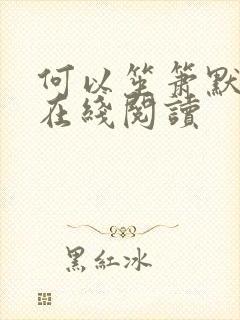 何以笙箫默
在綫閱讀
黑紅冰